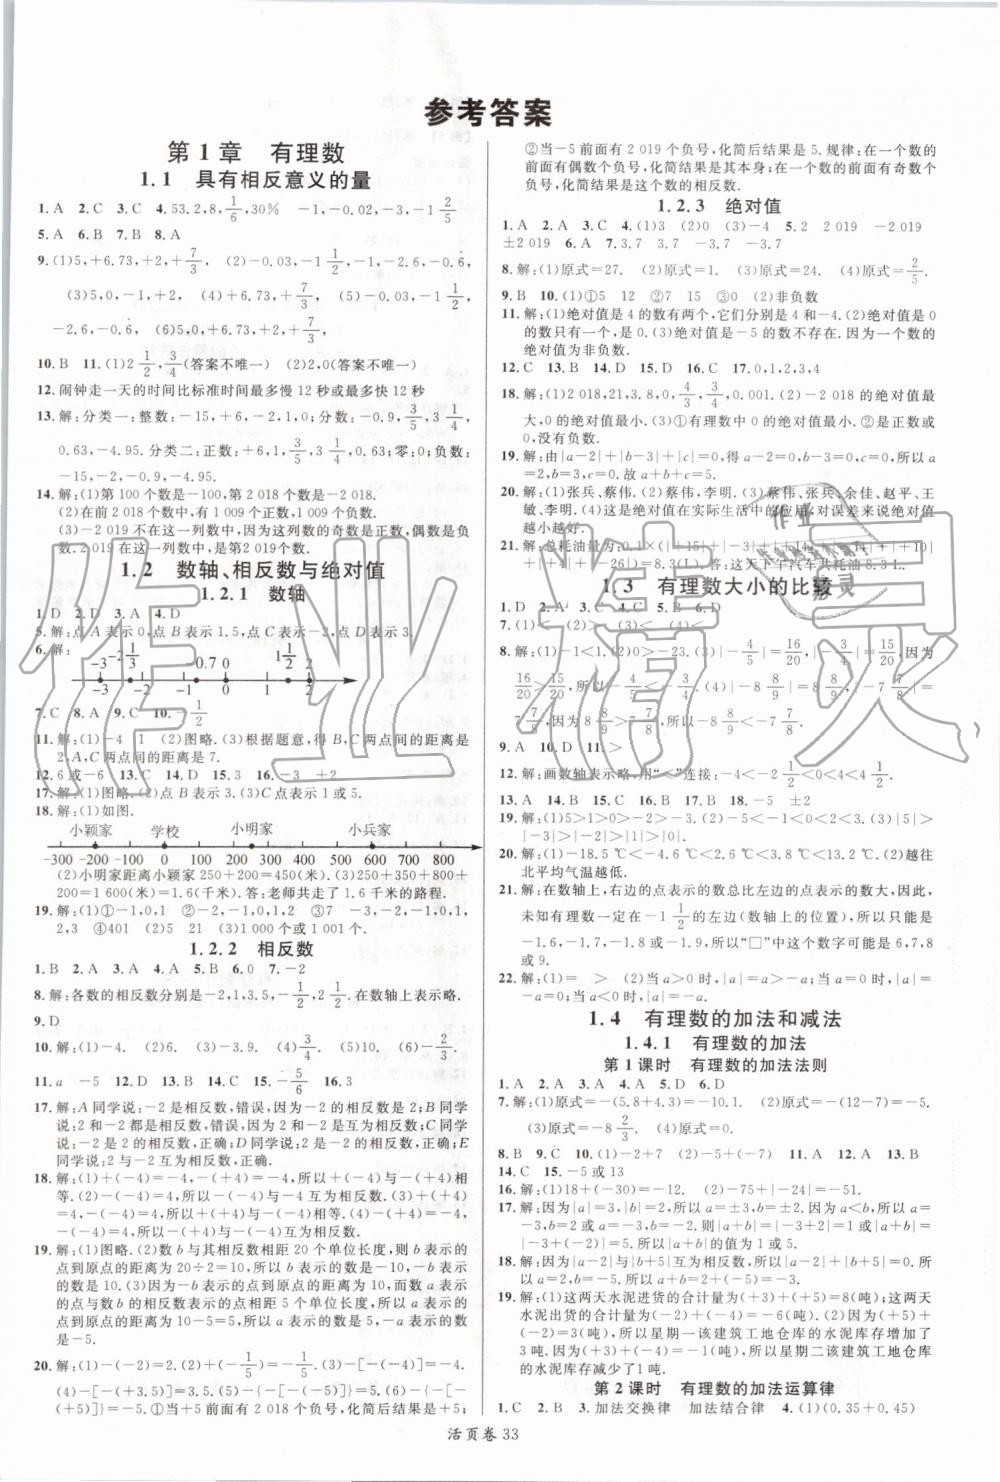 参考答案
第1章 有理数
1.1 具有相反意义的量
1.A 2.C 3.C 4.53.2,8,1/6,30% -1,-0.02,-3,-1 2/5
5.A 6.B 7.B 8.A
9.(1)5,+6.73,+2,+7/3 (2)-0.03,-1 1/2,-1,-2.6,-0.6,
(3)5,0,-1,+2 (4)+6.73,+7/3 (5)-0.03,-1 1/2,
-2.6,-0.6, (6)5,0,+6.73,+2,+7/3
10.B 11.(1)2 1/2,3/4(答案不唯一) (2)2,0(答案不唯一)
12.闹钟走一天的时间比标准时间最多慢12秒或最多快12秒
13.解:分类一:整数:-15,+6,-2,1,0;分数:-0.9,3/5,3 1/4,
0.63,-4.95.分类二:正数:+6,1,3/5,3 1/4,0.63;零:0;负数:
-15,-2,-0.9,-4.95.
14.解:(1)第100个数是-100,第2 018个数是-2018.
(2)前2 018个数中,有1 009个正数,1 009个负数.
(3)-2 019不在这一列数中,因为这列数的奇数是正数,偶数是负
数.2 019在这一列数中,是第2 019个数.
1.2 数轴、相反数与绝对值
1.2.1 数轴
1.D 2.D 3.A 4.D
5.解:点A表示0,点B表示1.5,点C表示-3,点D表示3.
6.解:
-3 -2 1/2 -0.7 0 1 1/2 2
-3 -2 -1 0 1 2
7.C 8.A 9.C 10.-1/2
11.解:(1)-4 1 (2)图略.(3)根据题意,得B,C两点间的距离是
2,A,C两点间的距离是7.
12.6或-6 13.C 14.D 15.3 16.-3 +2
17.解:(1)图略.(2)点B表示-3.(3)C点表示1或5.
18.解:(1)如图.
小颖家 学校 小明家 小兵家
-300 -200 -100 0 100 200 300 400 500 600 700 800
(2)小明家距离小颖家250+200=450(米).(3)250+350+800+
200=1600(米)=1.6(千米).答:老师共走了1.6千米的路程.
19.解:(1)①-1,0,1 ②-2,-1,0,1,2 ③7 -3,-2,-1,0,1,
2,3 ④401 (2)5 21 (3)1 000个或1 001个.
1.2.2 相反数
1.B 2.A 3.A 4.A 5.B 6.0 7.-2
8.解:各数的相反数分别是-2,1,3.5,-1/2,2 1/2.在数轴上表示略.
9.D
10.解:(1)-4. (2)6. (3)-3.9. (4)3/4. (5)10. (6)-2/3.
11.a -5 12.D 13.A 14.C 15.-5/6 16.3
17.解:A同学说:-2是相反数,错误,因为-2的相反数是2;B同学
说:2和-2都是相反数,错误,因为2和-2是互为相反数;C同学
说:-2是2的相反数,正确;D同学说:-2是2的相反数,正确;E
同学说:2与-2互为相反数,正确.
18.解:(1)+(-4)=-4,-(+4)=-4,所以+(-4)与-(+4)相
等.(2)+(-4)=-4,所以-4与+4互为相反数.(3)+(+4)
=4,-(-4)=4,所以+(+4)与-(-4)相等.(4)+(-4)=-4,
-(-4)=4,所以+(-4)与-(-4)互为相反数.
19.解:(1)图略.(2)数b与其相反数相距20个单位长度,则b表示
的点到原点的距离为20÷2=10,所以b表示的数是-10,-b表示
的数是10.(3)因为-b表示的点到原点的距离为10,而数a表示
的点与数b的相反数表示的点相距5个单位长度,所以a表示的
点到原点的距离为10-5=5,所以a表示的数是5,-a表示的数是
-5.
20.解:(1)-(-2)=2. (2)+(-1/5)=-1/5. (3)-[-(-4)]=-4.
(4)-[-(+3.5)]=3.5.(5)-{-[-(-5)]}=5.(6)-{-[-
(+5)]}=-5.①当+5前面有2 018个负号,化简后结果是5;
②当-5前面有2 019个负号,化简后结果是5.规律:在一个数的
前面有偶数个负号,化简结果是其本身;在一个数的前面有奇数个
负号,化简结果是这个数的相反数.
1.2.3 绝对值
1.A 2.A 3.C 4.(1)3 (2)0 (3)-4 5.2 2 019 -2019
±2 019 6.A 7.3.7 3.7 -3.7 -3.7
8.解:(1)原式=27. (2)原式=1. (3)原式=24. (4)原式=2/5.
9.B 10.(1)①5 12 ②7 15 ③0 (2)非负数
11.解:(1)绝对值是4的数有两个,它们分别是4和-4.(2)绝对值是0
的数只有一个,是0.(3)绝对值是-5的数不存在.因为一个数的
绝对值为非负数.
12.C 13.B 14.D 15.D 16.C 17.0,1,2,3,4
18.解:(1)2 018,21,3.8,0,4/3,3/4,0.001.(2)-2 018的绝对值最
大,0的绝对值最小.(3)①有理数中0的绝对值最小.②是正数或
0,没有负数.
19.解:由|a-2|+|b-3|+|c|=0,得a-2=0,b-3=0,c=0,所以a
=2,b=3,c=0.故a+b+c=5.
20.解:(1)张兵、蔡伟.(2)蔡伟,李明.(3)蔡伟、张兵、余佳、赵平、王
敏、李明.(4)这是绝对值在实际生活中的应用,对误差来说绝对值
越小越好.
1.3 有理数大小的比较
1.D 2.A 3.C 4.C 5.B 6.A
9.A 10.D 11.>
12.解:画数轴表示略,用“<”连接:-4<-2 1/2<0<4<4 1/2.
13.A 14.B 15.B 16.D 17.B 18.-5 ±2
19.解:(1)5>1>0>-2>-3.(2)-5<-1<0<2<3.(3)|5|>
|-3|>|-2|>|1|>|0|.
20.解:(1)-18.5℃<-4.6℃<3.8℃<13.2℃.(2)越往
北平均气温越低.
21.解:在数轴上,右边的点表示的数总比左边的点表示的数大,因此,
未知有理数一定在-1 1/2的左边(数轴上的位置),所以只能是
-1.6,-1.7,-1.8,-1.9,所以“□”中这个数字可能是6,7,8
或9.
22.解:(1)= > (2)当a>0时,|a|=a>-a;当a=0时,|a|=
-a=0;当a<0时,|a|=-a>a.
1.4 有理数的加法和减法
1.4.1 有理数的加法
第1课时 有理数的加法法则
1.A 2.A 3.D 4.D 5.D 6.D
7.解:(1)原式=-(5.8+4.3)=-10.1. (2)原式=-(12-7)=-5.
(3)原式=-8 2/3. (4)原式=0.
8.B 9.C 10.(1)-2+7 (2)-5+(-7) 11.A 12.A 13.B
14.C 15.-5或13
16.解:(1)18+(-30)=-12. (2)-75+|-24|=-51.
17.解:因为|a|=3,|b|=2,所以a=±3,b=±2.因为a<b,所以a=
-3,b=2或a=-3,b=-2.则|a|+b=|-3|+2=5或|a|+b=
|-3|+(-2)=1.
18.解:因为|a-2|与|b+5|互为相反数,所以|a-2|+|b+5|=0.所
以a=2,b=-5.所以a+b=2+(-5)=-3.
19.解:(1)这两天水泥进货的合计量为(+3)+(+5)=8(吨);这两天
水泥出货的合计量为(-2)+(-4)=-6(吨).(2)因为(+5)+
(-2)=3(吨),所以星期一该建筑工地仓库的水泥库存增加了
3吨.因为(+3)+(-4)=-1(吨),所以星期二该建筑工地仓库
的水泥库存减少了1吨.
第2课时 有理数的加法运算律
1.C 2.B 3.加法交换律 加法结合律 4.(1)(0.35+0.45)
活页卷 33
作业精灵